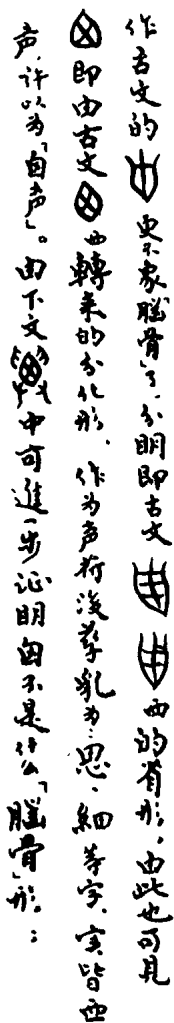 作古文的 更不象「腦骨」了，分明即古文 西的省形，由此也可見
即由古文 西轉来的分化形，作为声符後孳乳为：思、細等字，实皆西
声，许以为「囟声」。由下文 中可進一步证明囟不是什么「腦骨」形。：